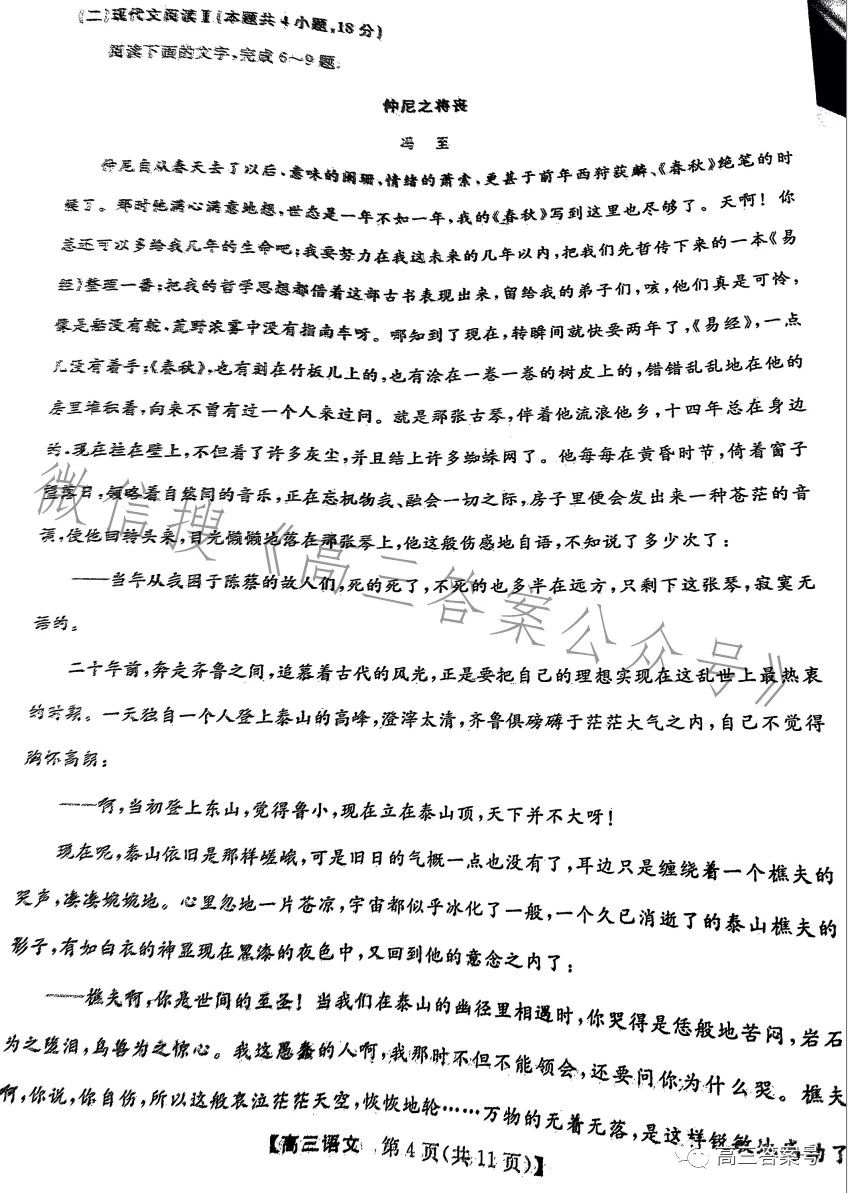 (二)现代文阅读Ⅰ(本题共4小题,18分)
阅读下面的文字,完成6~9题。
仲尼之将丧
冯 至
仲尼自从春天去了以后,意味的阑珊,情绪的萧索,更甚于前年西狩获麟、《春秋》绝笔的时
候了。那时他满心满意地想,世态是一年不如一年,我的《春秋》写到这里也尽够了。天啊!你
总还可以多给我几年的生命吧;我要努力在我这未来的几年以内,把我们先哲传下来的一本《易
经》整理一番;把我的哲学思想都借着这部古书表现出来,留给我的弟子们,咳,他们真是可怜,
像是船没有舵,荒野浓雾中没有指南车呀。哪知到了现在,转瞬间就快要两年了,《易经》,一点
儿没有着手;《春秋》,也有刻在竹板儿上的,也有涂在一卷一卷的树皮上的,错错乱乱地在他的
房里堆积着,向来不曾有过一个人来过问。就是那张古琴,伴着他流浪他乡,十四年总在身边
的,现在挂在壁上,不但着了许多灰尘,并且结上许多蜘蛛网了。他每每在黄昏时节,倚着窗子
望落日,领略着自然间的音乐,正在忘机物我、融会一切之际,房子里便会发出来一种苍茫的音
调,使他回转头来,目光懒懒地落在那张琴上,他这般伤感地自语,不知说了多少次了:
——当年从我困于陈蔡的故人们,死的死了,不死的也多半在远方,只剩下这张琴,寂寞无
语的。
二十年前,奔走齐鲁之间,追慕着古代的风光,正是要把自己的理想实现在这乱世上最热衷
的时期。一天独自一个人登上泰山的高峰,澄滓太清,齐鲁俱磅礴于茫茫大气之内,自己不觉得
胸怀高朗:
——啊,当初登上东山,觉得鲁小,现在立在泰山顶,天下并不大呀!
现在呢,泰山依旧是那样嵯峨,可是旧日的气概一点也没有了,耳边只是缠绕着一个樵夫的
哭声,凄凄婉婉地。心里忽地一片苍凉,宇宙都似乎冰化了一般,一个久已消逝了的泰山樵夫的
影子,有如白衣的神显现在黑漆的夜色中,又回到他的意念之内了:
——樵夫啊,你是世间的至圣!当我们在泰山的幽径里相遇时,你哭得是恁般地苦闷,岩石
为之堕泪,鸟兽为之惊心。我这愚蠢的人啊,我那时不但不能领会,还要问你为什么哭。樵夫
啊,你说,你自伤,所以这般哀泣茫茫天空,恢恢地轮……万物的无着无落,是这样锐敏地感动了
【高三语文 第4页(共11页)】
微信搜《高三答案公众号》
高三答案号